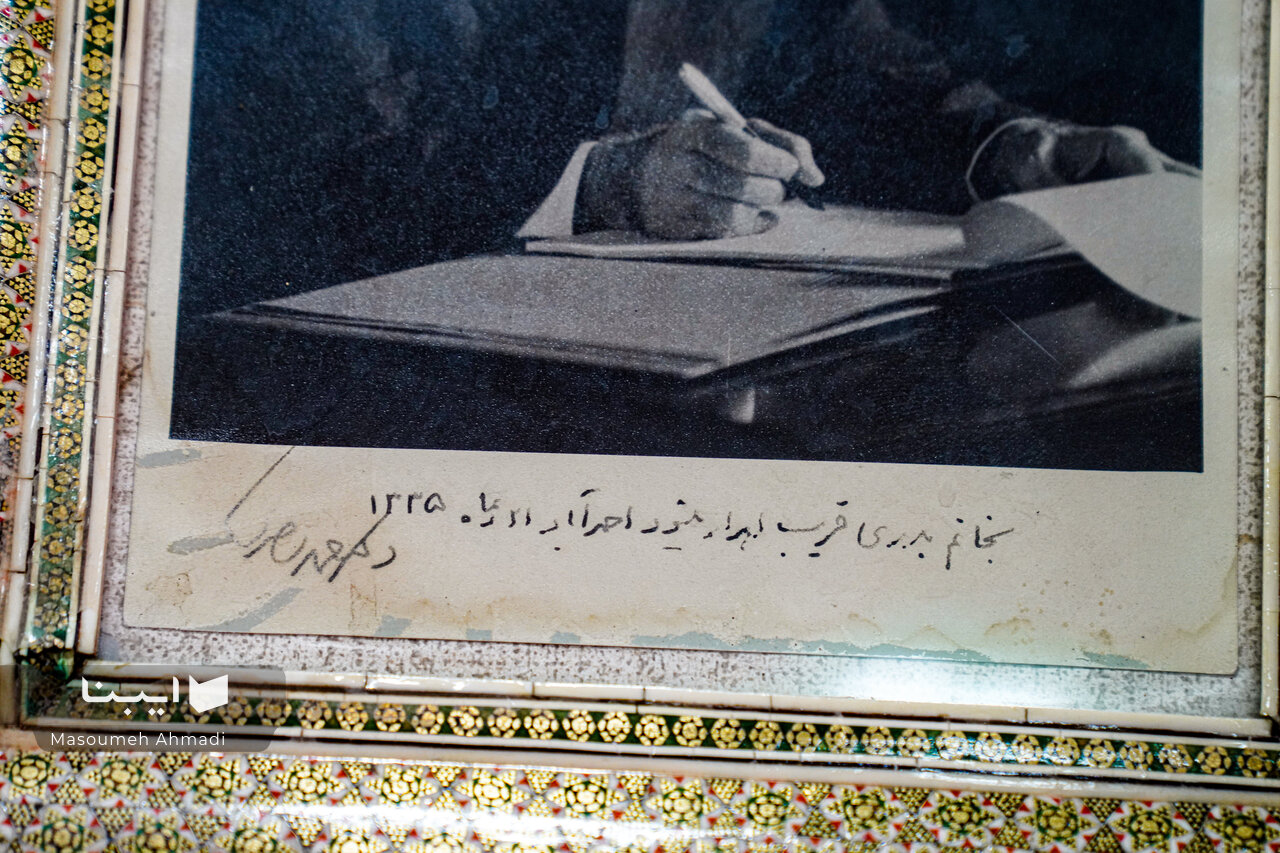 بخانم بدری قریب اهداء میشود احمدآباد ماه ۱۳۳۵
دکتر محمد مصدق
ایبنا
Masoumeh Ahmadi